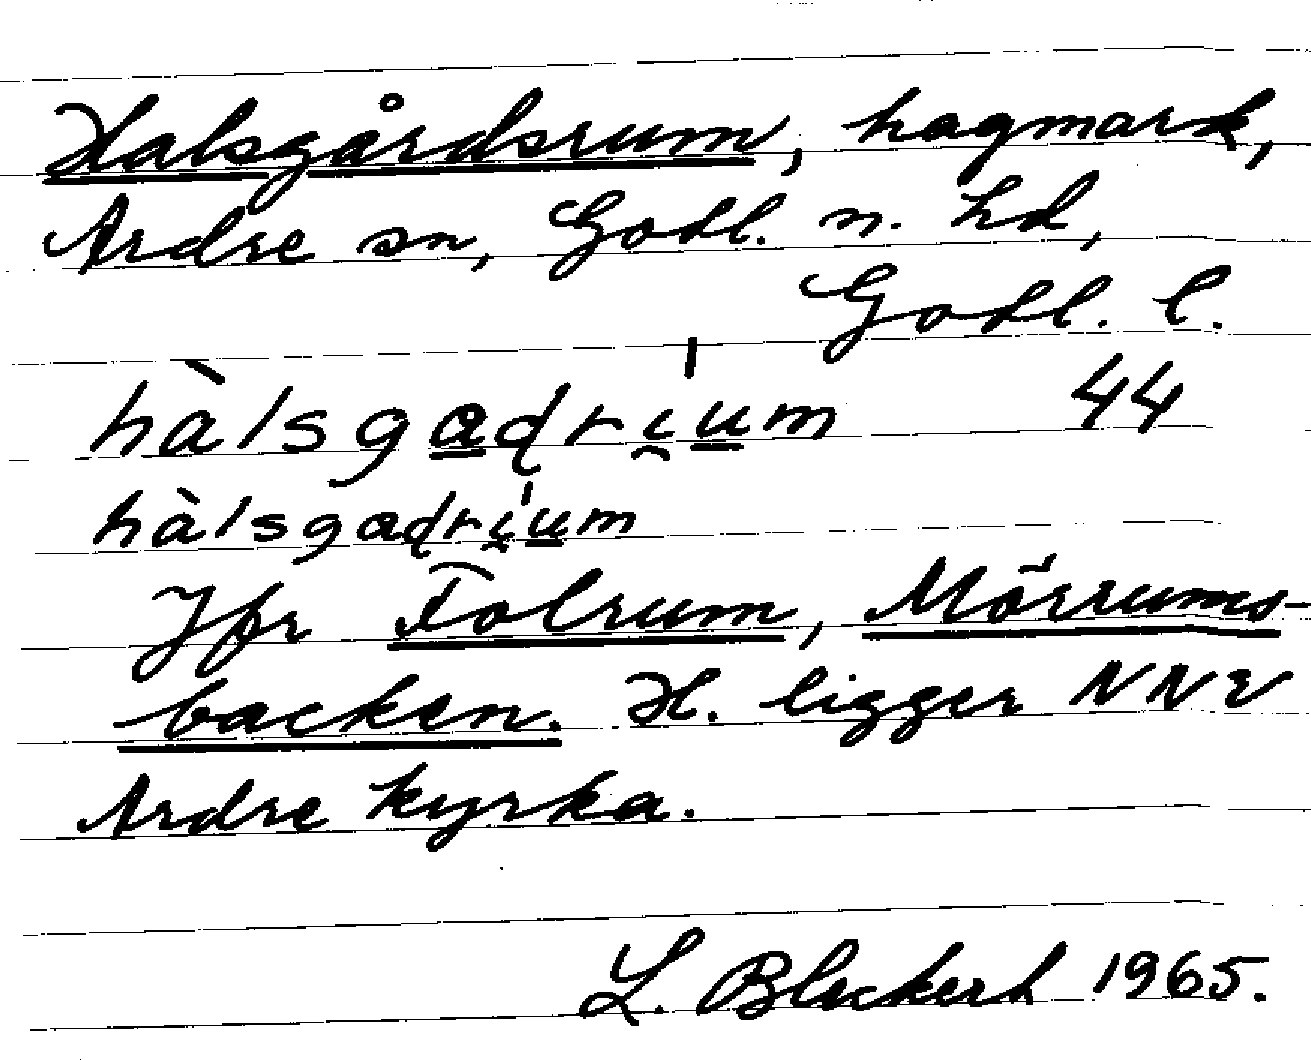 Halsgårdsrum, hagmark,
Ardre sn, Gotl. n. hd,
Gotl. l.
hàlsgaḍri̯úm 44
hàlsgaḍri̯úm
Jfr Folrum, Mörrums-
backen. H. ligger NNV
Ardre kyrka.
L. Bleckert 1965.